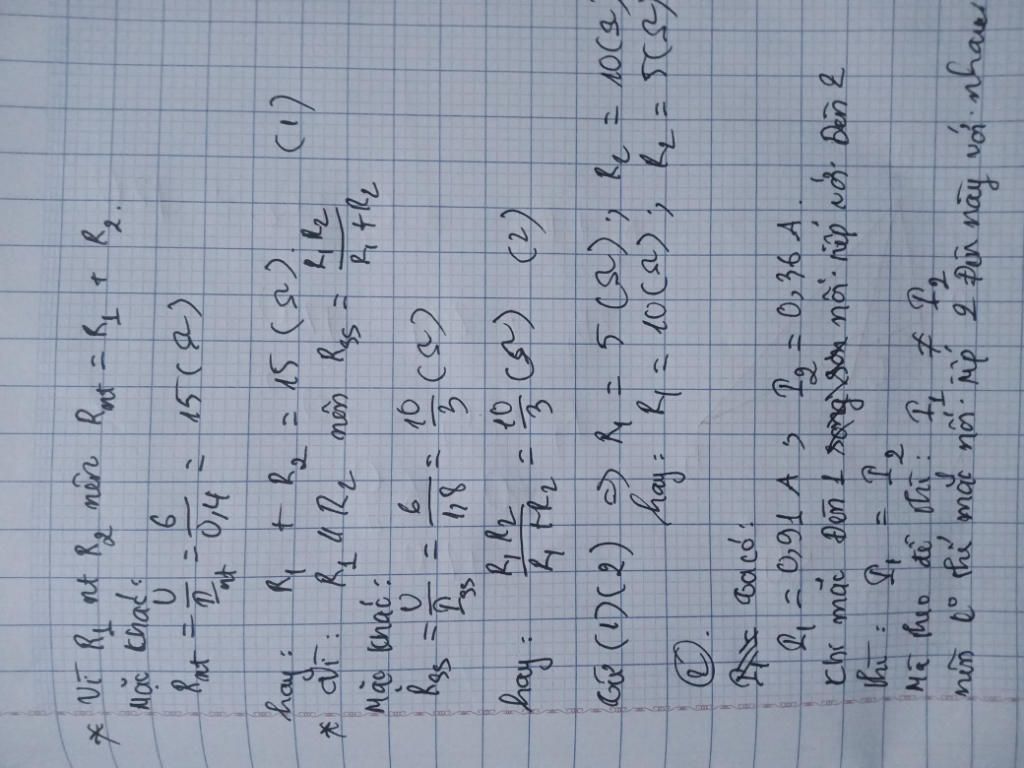 * Vì R₁ nt R₂ nên Rnt = R₁ + R₂.
Mặc khác:
Rnt = U/Int = 6/0,4 = 15 (Ω)
hay: R₁ + R₂ = 15 (Ω). (1)
* Vì: R₁ // R₂ nên Rss = R₁R₂/R₁ + R₂
Mặc khác:
Rss = U/Iss = 6/1,8 = 10/3 (Ω)
hay: R₁R₂/R₁+R₂ = 10/3 (Ω) (2)
Từ (1)(2) => R₁ = 5 (Ω); R₂ = 10(Ω)
hay: R₁ = 10(Ω); R₂ = 5(Ω)
②.
Ta có:
I₁ = 0,91 A; I₂ = 0,36 A.
Khi mắc Đèn 1 song son nối tiếp với Đèn 2
thì: I₁ = I₂
Mà theo đề thì: I₁ ≠ I₂
nên k° thể mắc nối tiếp 2 Đèn này với nhau